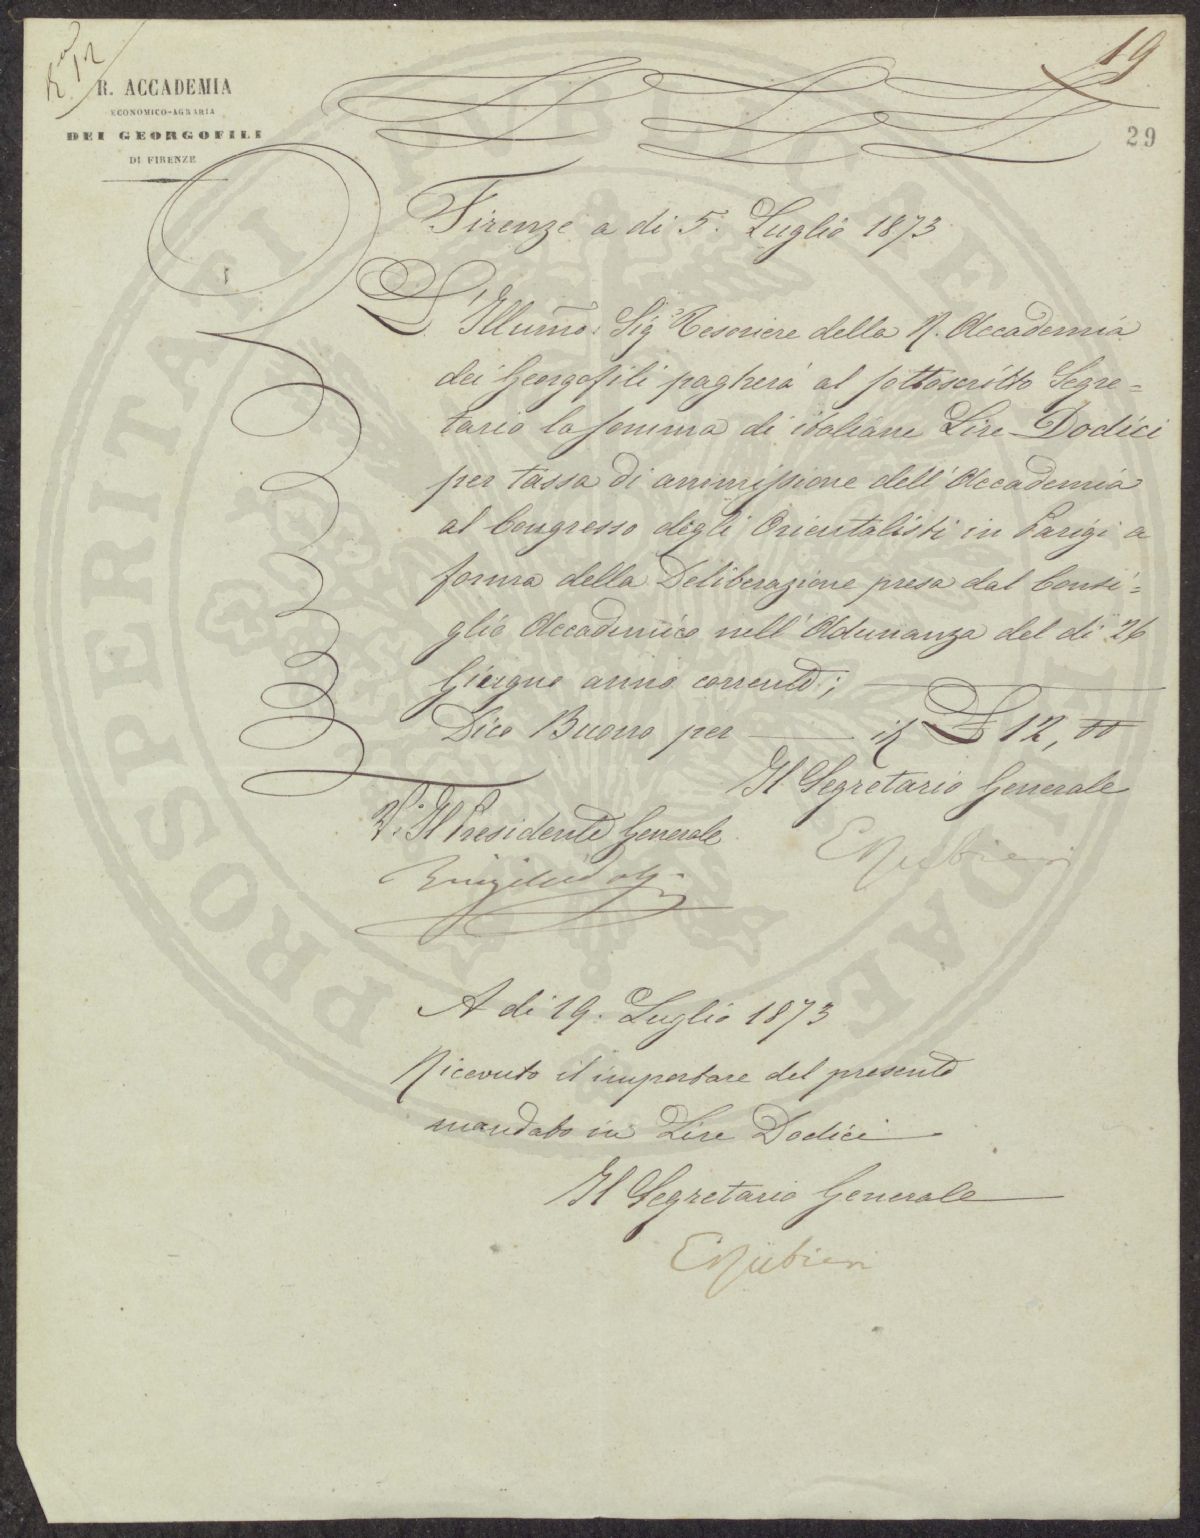 19
R. ACCADEMIA
ECONOMICO-AGRARIA
DEI GEORGOFILI
DI FIRENZE
29
Firenze a di 5. Luglio 1873
L'Illumo: Sig Tesoriere della R. Accademia
dei Georgofili pagherà al sottoscritto Segre=
tario la somma di italiane Lire Dodici
per tassa di ammissione dell'Accademia
al Congresso degli Orientalisti in Parigi a
forma della Deliberazione presa dal Consi=
glio Accademico nell'Adunanza del di 26
Giugno anno corrente;
Dico Buono per it £ 12, 00
Il Segretario Generale
V. Il Presidente Generale
E Rubieri
A di 19. Luglio 1873
Ricevuto il importare del presente
mandato in Lire Dodici
Il Segretario Generale
E Rubieri
PROSPERITATI PUBLICAE AUGENDAE